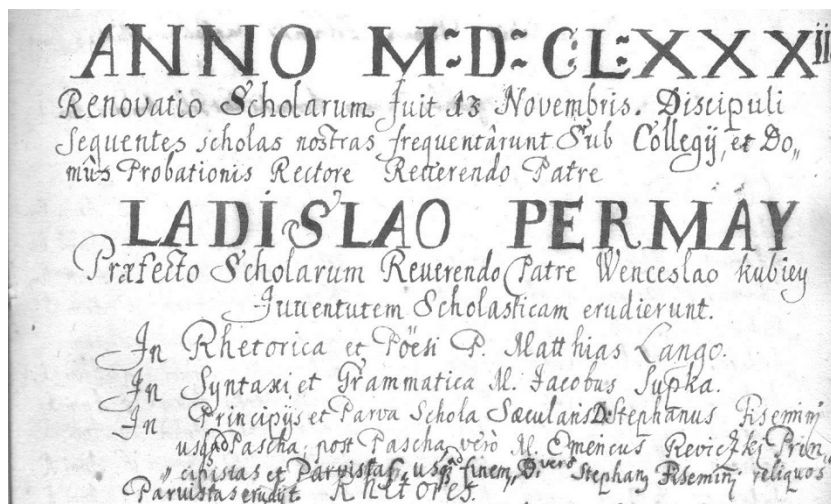 ANNO M:D:CL:XXXXii
Renovatio Scholarum fuit 13 Novembris. Discipuli
sequentes scholas nostras frequentârunt Sub Collegij, et Do„
mûs Probationis Rectore Reuerendo Patre
LADISLAO PERMAY
Præfecto Scholarum Reuerendo Patre Wenceslao kubiey
Juuentutem Scholasticam erudierunt.
In Rhetorica et Pöesi P. Matthias Lango.
In Syntaxi et Grammatica M. Jacobus Supka.
In Principijs et Parva Schola Sæcularis D: Stephanus
Pascha, post Pascha verò M. Emericus Reviczkj Prin„
cipistas et Parvistas finem, D. verò Stephan9 reliquos
Parvistas erudijt. Rhetores.